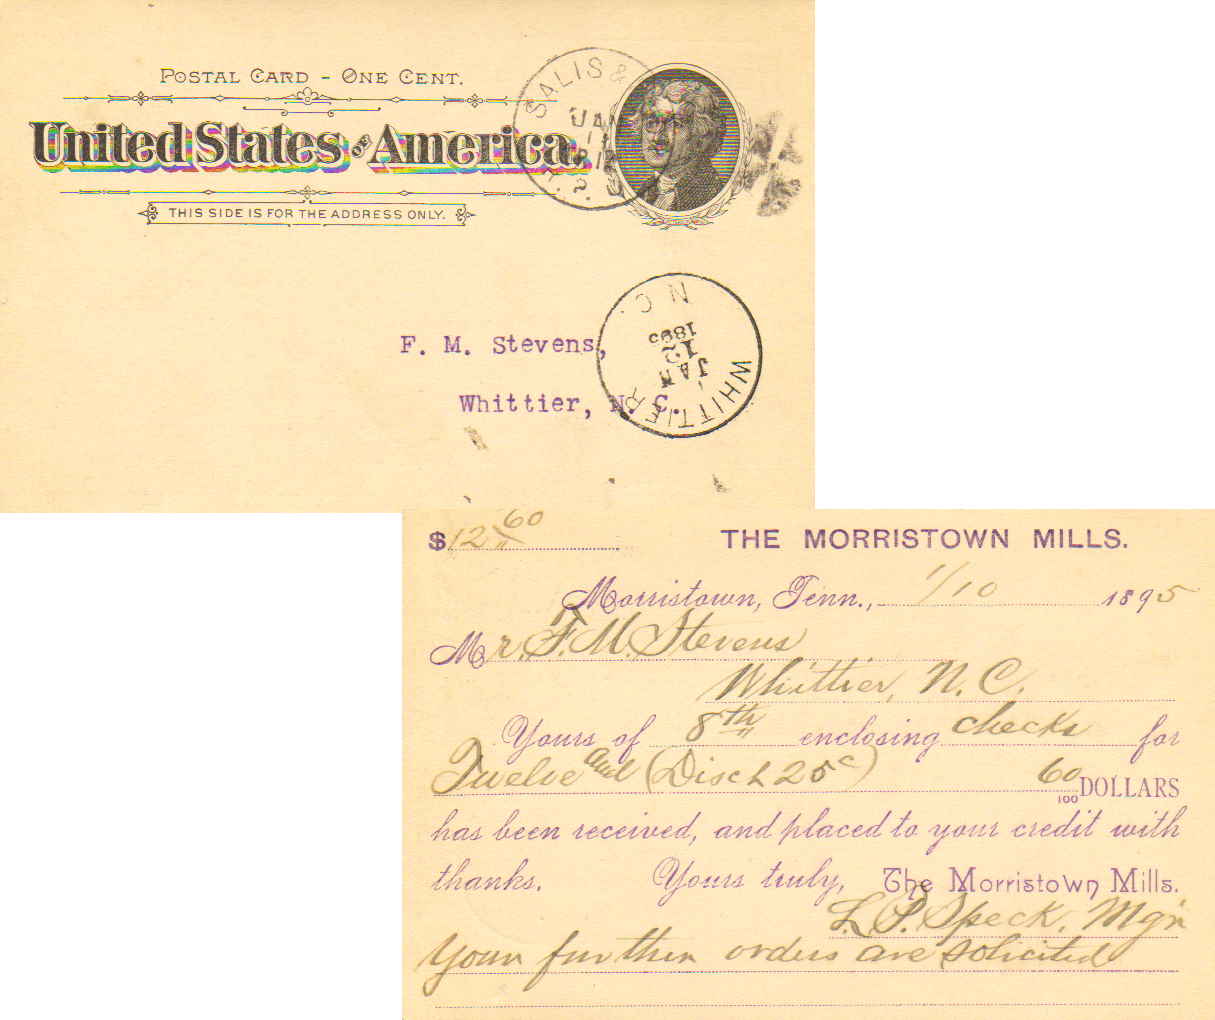 POSTAL CARD - ONE CENT.
United States OF America.
THIS SIDE IS FOR THE ADDRESS ONLY.
SALIS &
JAN
11
WHITTIER
JAN
12
1895
N.C.
F. M. Stevens,
Whittier, N. C.
$12 60 THE MORRISTOWN MILLS.
Morristown, Tenn., 1/10 1895
Mr. F. M. Stevens
Whittier, N. C.
Yours of 8th enclosing checks for
Twelve and (Disct 25c) 60/100 DOLLARS
has been received, and placed to your credit with
thanks. Yours truly, The Morristown Mills.
L. P. Speck, Mgr
Your further orders are solicited